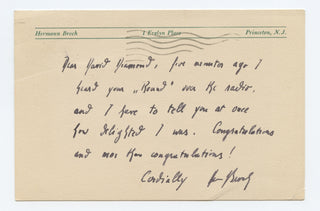 Hermann Broch 1 Evelyn Place Princeton, N.J.
Dear David Diamond, five minutes ago I
heard your „Round" over the radio,
and I have to tell you at once
how delighted I was. Congratulations
and more than congratulations!
Cordially Broch